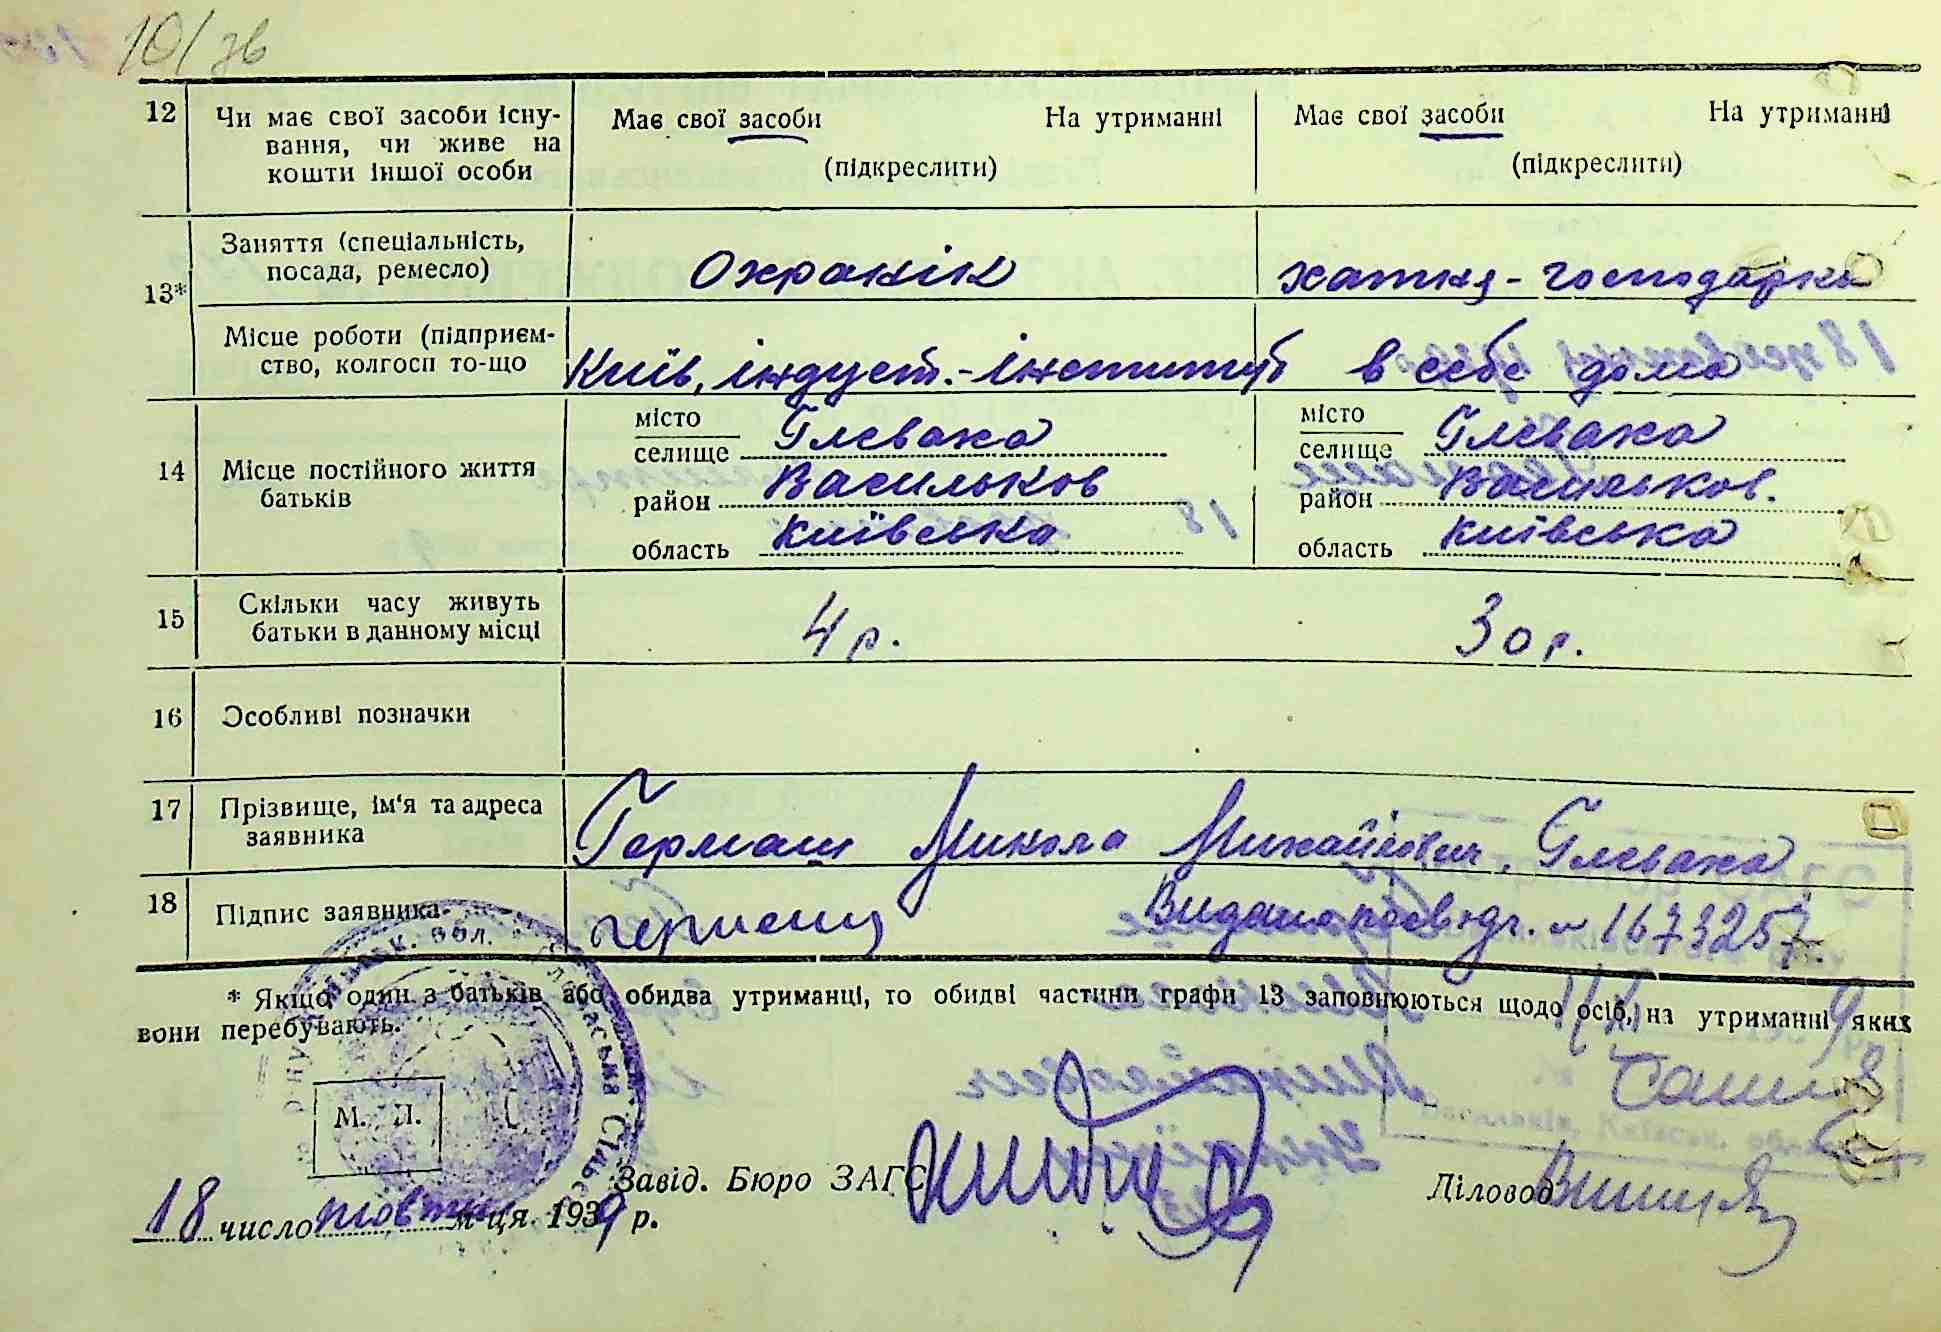 10/зв
12 Чи має свої засоби існу- Має свої засоби На утриманні Має свої засоби На утриманні
вання, чи живе на
кошти іншої особи (підкреслити) (підкреслити)
13* Заняття (спеціальність,
посада, ремесло) Охранік хатня-господарка
Місце роботи (підприєм-
ство, колгосп то-що Київ, індуст.-інститут в себе дома
14 Місце постійного життя
батьків
місто
селище Глеваха
район Васильков
область Київська
місто
селище Глеваха
район Васильков.
область Київська
15 Скільки часу живуть
батьки в данному місці 4 р. 30 р.
16 Особливі позначки
17 Прізвище, ім'я та адреса
заявника Гермаш Микола Михайлович. Глеваха
18 Підпис заявника Видано посвідч. № 1673257.
* Якщо один з батьків або обидва утриманці, то обидві частини графи 13 заповнюються щодо осіб, на утриманні яких
вони перебувають.
М. П.
Завід. Бюро ЗАГС Діловод
18 число жовтня м-ця 1939 р.